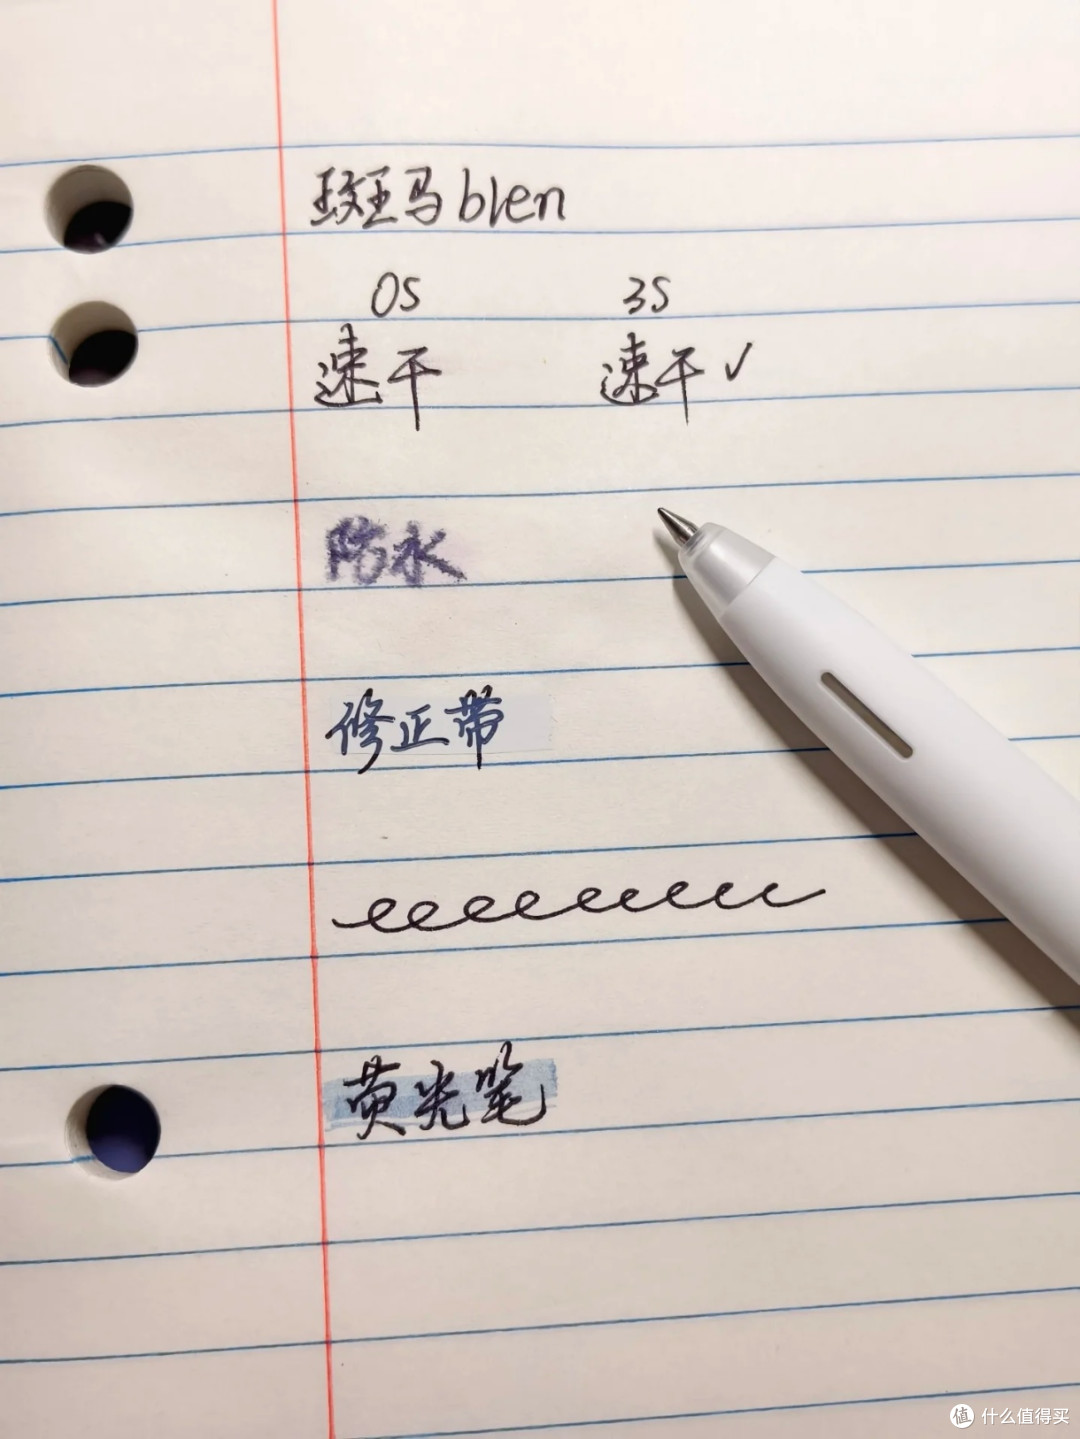 斑马blen
0S 3S
速干 速干✓
防水
修正带
荧光笔
值 什么值得买